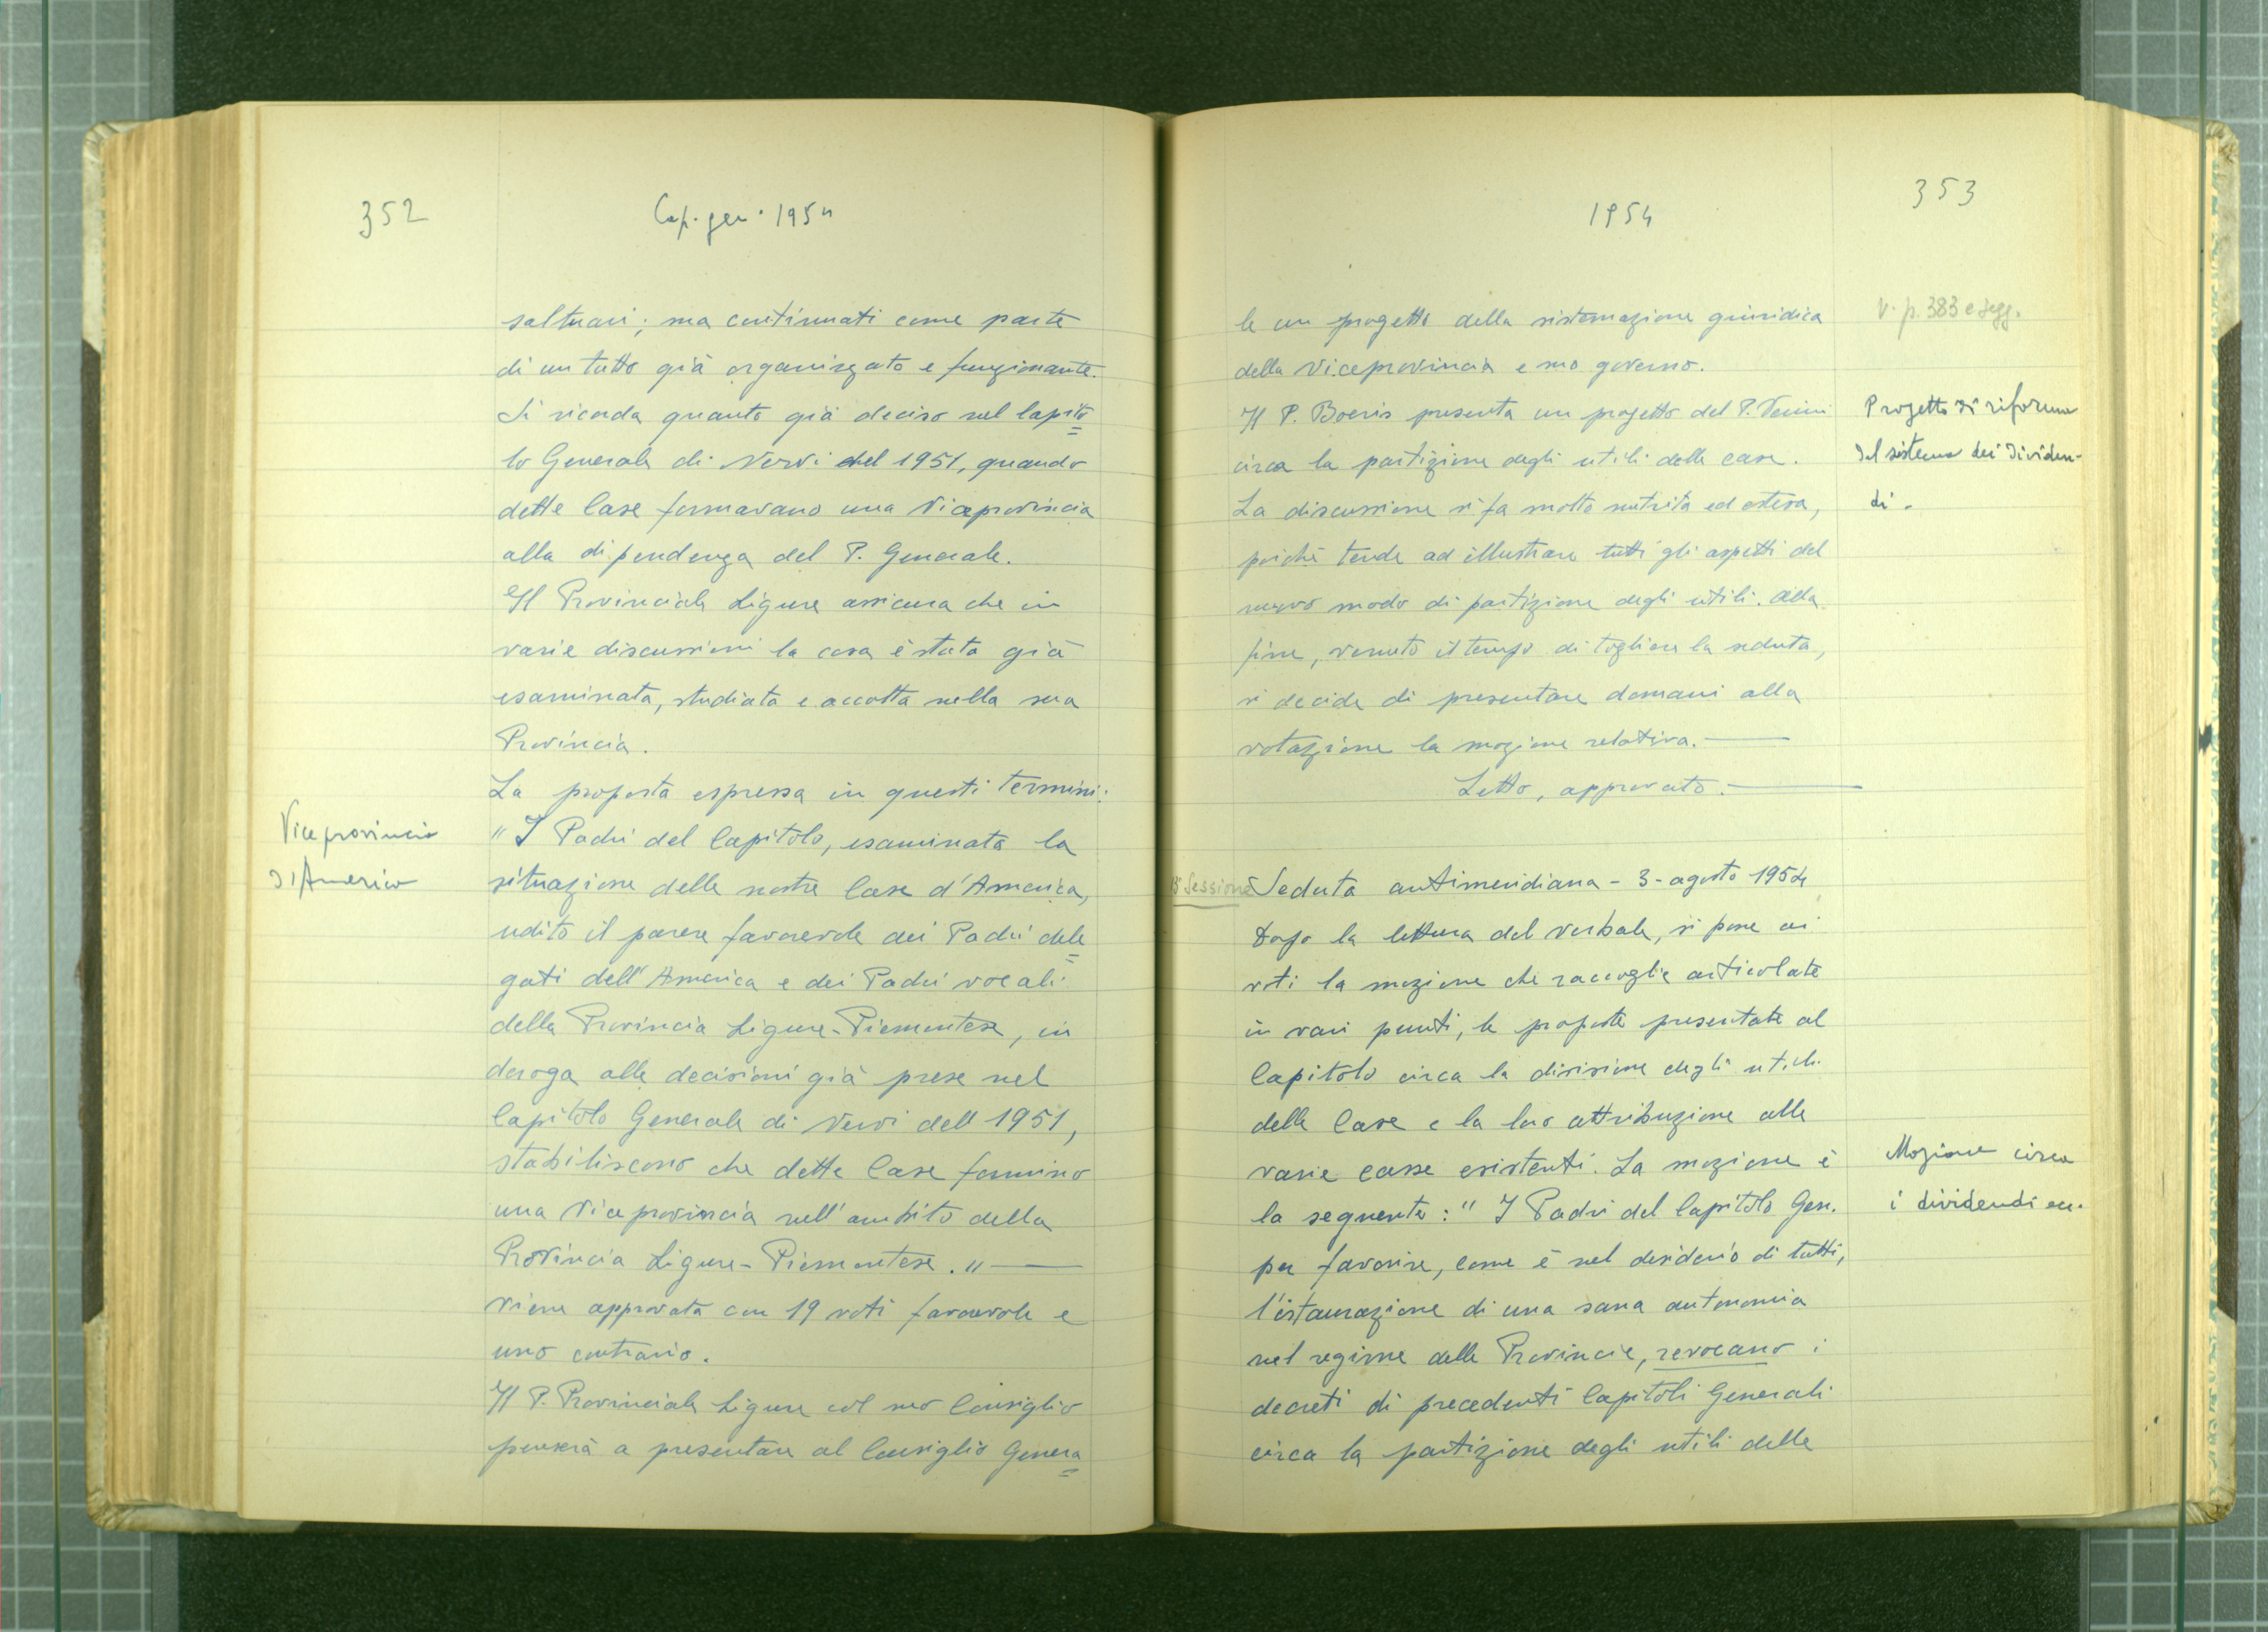 352
Cap. gen. 1954
saltuari; ma continuati come parte
di un tutto già organizzato e funzionante.
Si ricorda quanto già deciso nel Capito
lo Generale di Nervi del 1951, quando
dette Case formavano una Viceprovincia
alla dipendenza del P. Generale.
Il Provinciale Ligure assicura che in
varie discussioni la cosa è stata già
esaminata, studiata e accolta nella sua
Provincia.
La proposta espressa in questi termini:
Viceprovincia
d'America
"I Padri del Capitolo, esaminata la
situazione delle nostre Case d'America,
udito il parere favorevole dei Padri dele
gati dell'America e dei Padri vocali
della Provincia Ligure-Piemontese, in
deroga alle decisioni già prese nel
Capitolo Generale di Nervi dell 1951,
stabiliscono che dette Case formino
una Viceprovincia nell'ambito della
Provincia Ligure-Piemontese."
viene approvata con 19 voti favorevole e
uno contrario.
Il P. Provinciale Ligure col suo Consiglio
penserà a presentare al Consiglio Genera
353
1954
le un progetto della sistemazione giuridica
della Viceprovincia e suo governo.
V. p. 383 e segg.
Il P. Boeris presenta un progetto del P. Venini
circa la partizione degli utili delle case.
Progetto di riforma
del sistema dei dividen-
di.
La discussione si fa molto nutrita ed estesa,
poichè tende ad illustrare tutti gli aspetti del
nuovo modo di partizione degli utili. Alla
fine, venuto il tempo di togliere la seduta,
si decide di presentare domani alla
votazione la mozione relativa.
Letto, approvato.
Sessione
Seduta antimeridiana - 3 - agosto 1954
Dopo la lettura del verbale, si pone ai
voti la mozione che raccoglie articolate
in vari punti, le proposte presentate al
Capitolo circa la divisione degli utili
delle Case e la loro attribuzione alle
varie casse esistenti. La mozione è
la seguente: "I Padri del Capitolo Gen.
Mozione circa
i dividendi ecc.
per favorire, come è nel desiderio di tutti,
l'istaurazione di una sana autonomia
nel regime delle Provincie, revocano i
decreti di precedenti Capitoli Generali
circa la partizione degli utili delle